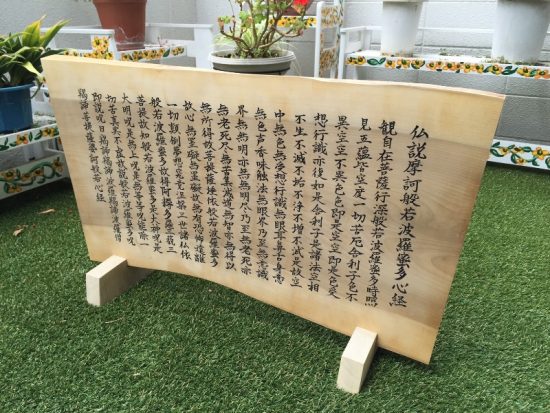 仏説摩訶般若波羅蜜多心経
観自在菩薩行深般若波羅蜜多時照
見五蘊皆空度一切苦厄舎利子色不
異空空不異色色即是空空即是色受
想行識亦復如是舎利子是諸法空相
不生不滅不垢不浄不増不減是故空
中無色無受想行識無眼耳鼻舌身意
無色声香味触法無眼界乃至無意識
界無無明亦無無明尽乃至無老死亦
無老死尽無苦集滅道無智亦無得以
無所得故菩提薩埵依般若波羅蜜多
故心無罣礙無罣礙故無有恐怖遠離
一切顛倒夢想究竟涅槃三世諸仏依
般若波羅蜜多故得阿耨多羅三藐三
菩提故知般若波羅蜜多是大神呪是
大明呪是無上呪是無等等呪能除一
切苦真実不虚故説般若波羅蜜多呪
即説呪曰羯諦羯諦波羅羯諦波羅僧
羯諦菩提薩婆訶般若心経